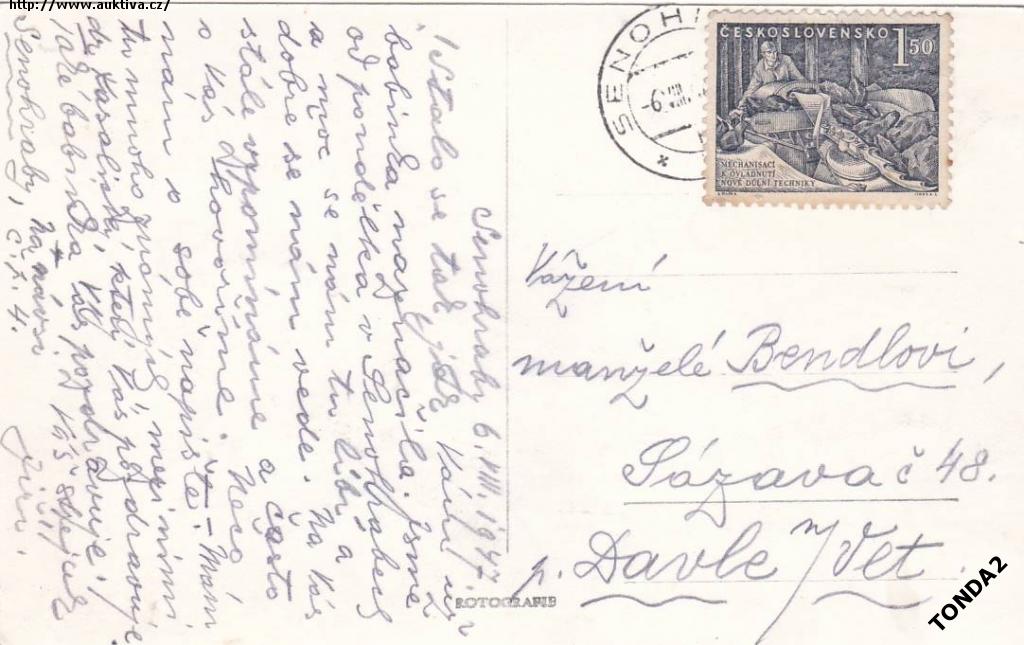 http://www.auktiva.cz/
Senohraby 6.VIII.1947.
Stalo se tak, jak Vám již
babinka naznačila. Jsme
od pondělka v Senohrabech
a moc se nám tu líbí, a
dobře se nám vede. Na Vás
stále vzpomínáme a často
o Vás hovoříme. Něco
nám o sobě napište. – Mám
tu mnoho známých, mezi nimi
kteří Vás pozdravuje
babinka Vás pozdravuje!
Senohraby, č.p. 4. Na návsi Váš
Jiří.
SENOH
-6.VIII.
ČESKOSLOVENSKO 1 50
MECHANISACÍ
K OVLÁDNUTÍ
NOVÉ DŮLNÍ TECHNIKY
Vážení
manželé Bendlovi,
Sázava č 48.
p. Davle n/Vlt.
ROTOGRAFIE
TONDA2